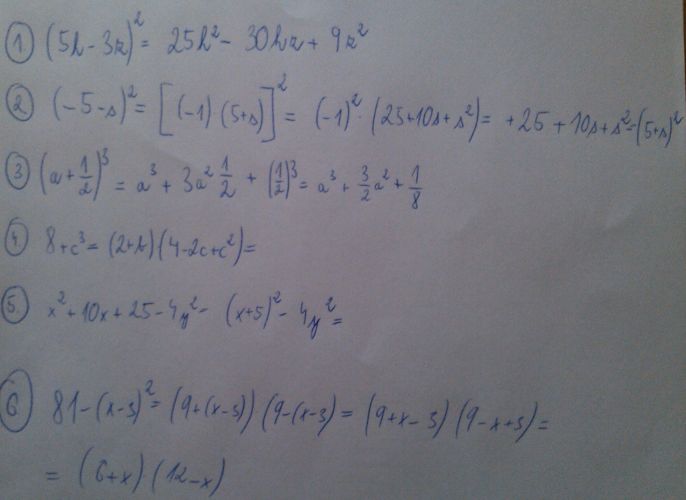 1. (5h-3k)² = 25h² - 30hk + 9k²
2. (-5-s)² = [(-1)(5+s)]² = (-1)²·(25+10s+s²) = +25+10s+s² = (5+s)²
3 (a+1/2)³ = a³ + 3a² 1/2 + (1/2)³ = a³ + 3/2 a² + 1/8
4. 8+c³ = (2+c)(4-2c+c²) =
5. x²+10x+25-4y² - (x+5)² - 4y² =
6 81-(x-3)² = (9+(x-3))(9-(x-3) = (9+x-3)(9-x+3) =
= (6+x)·(12-x)